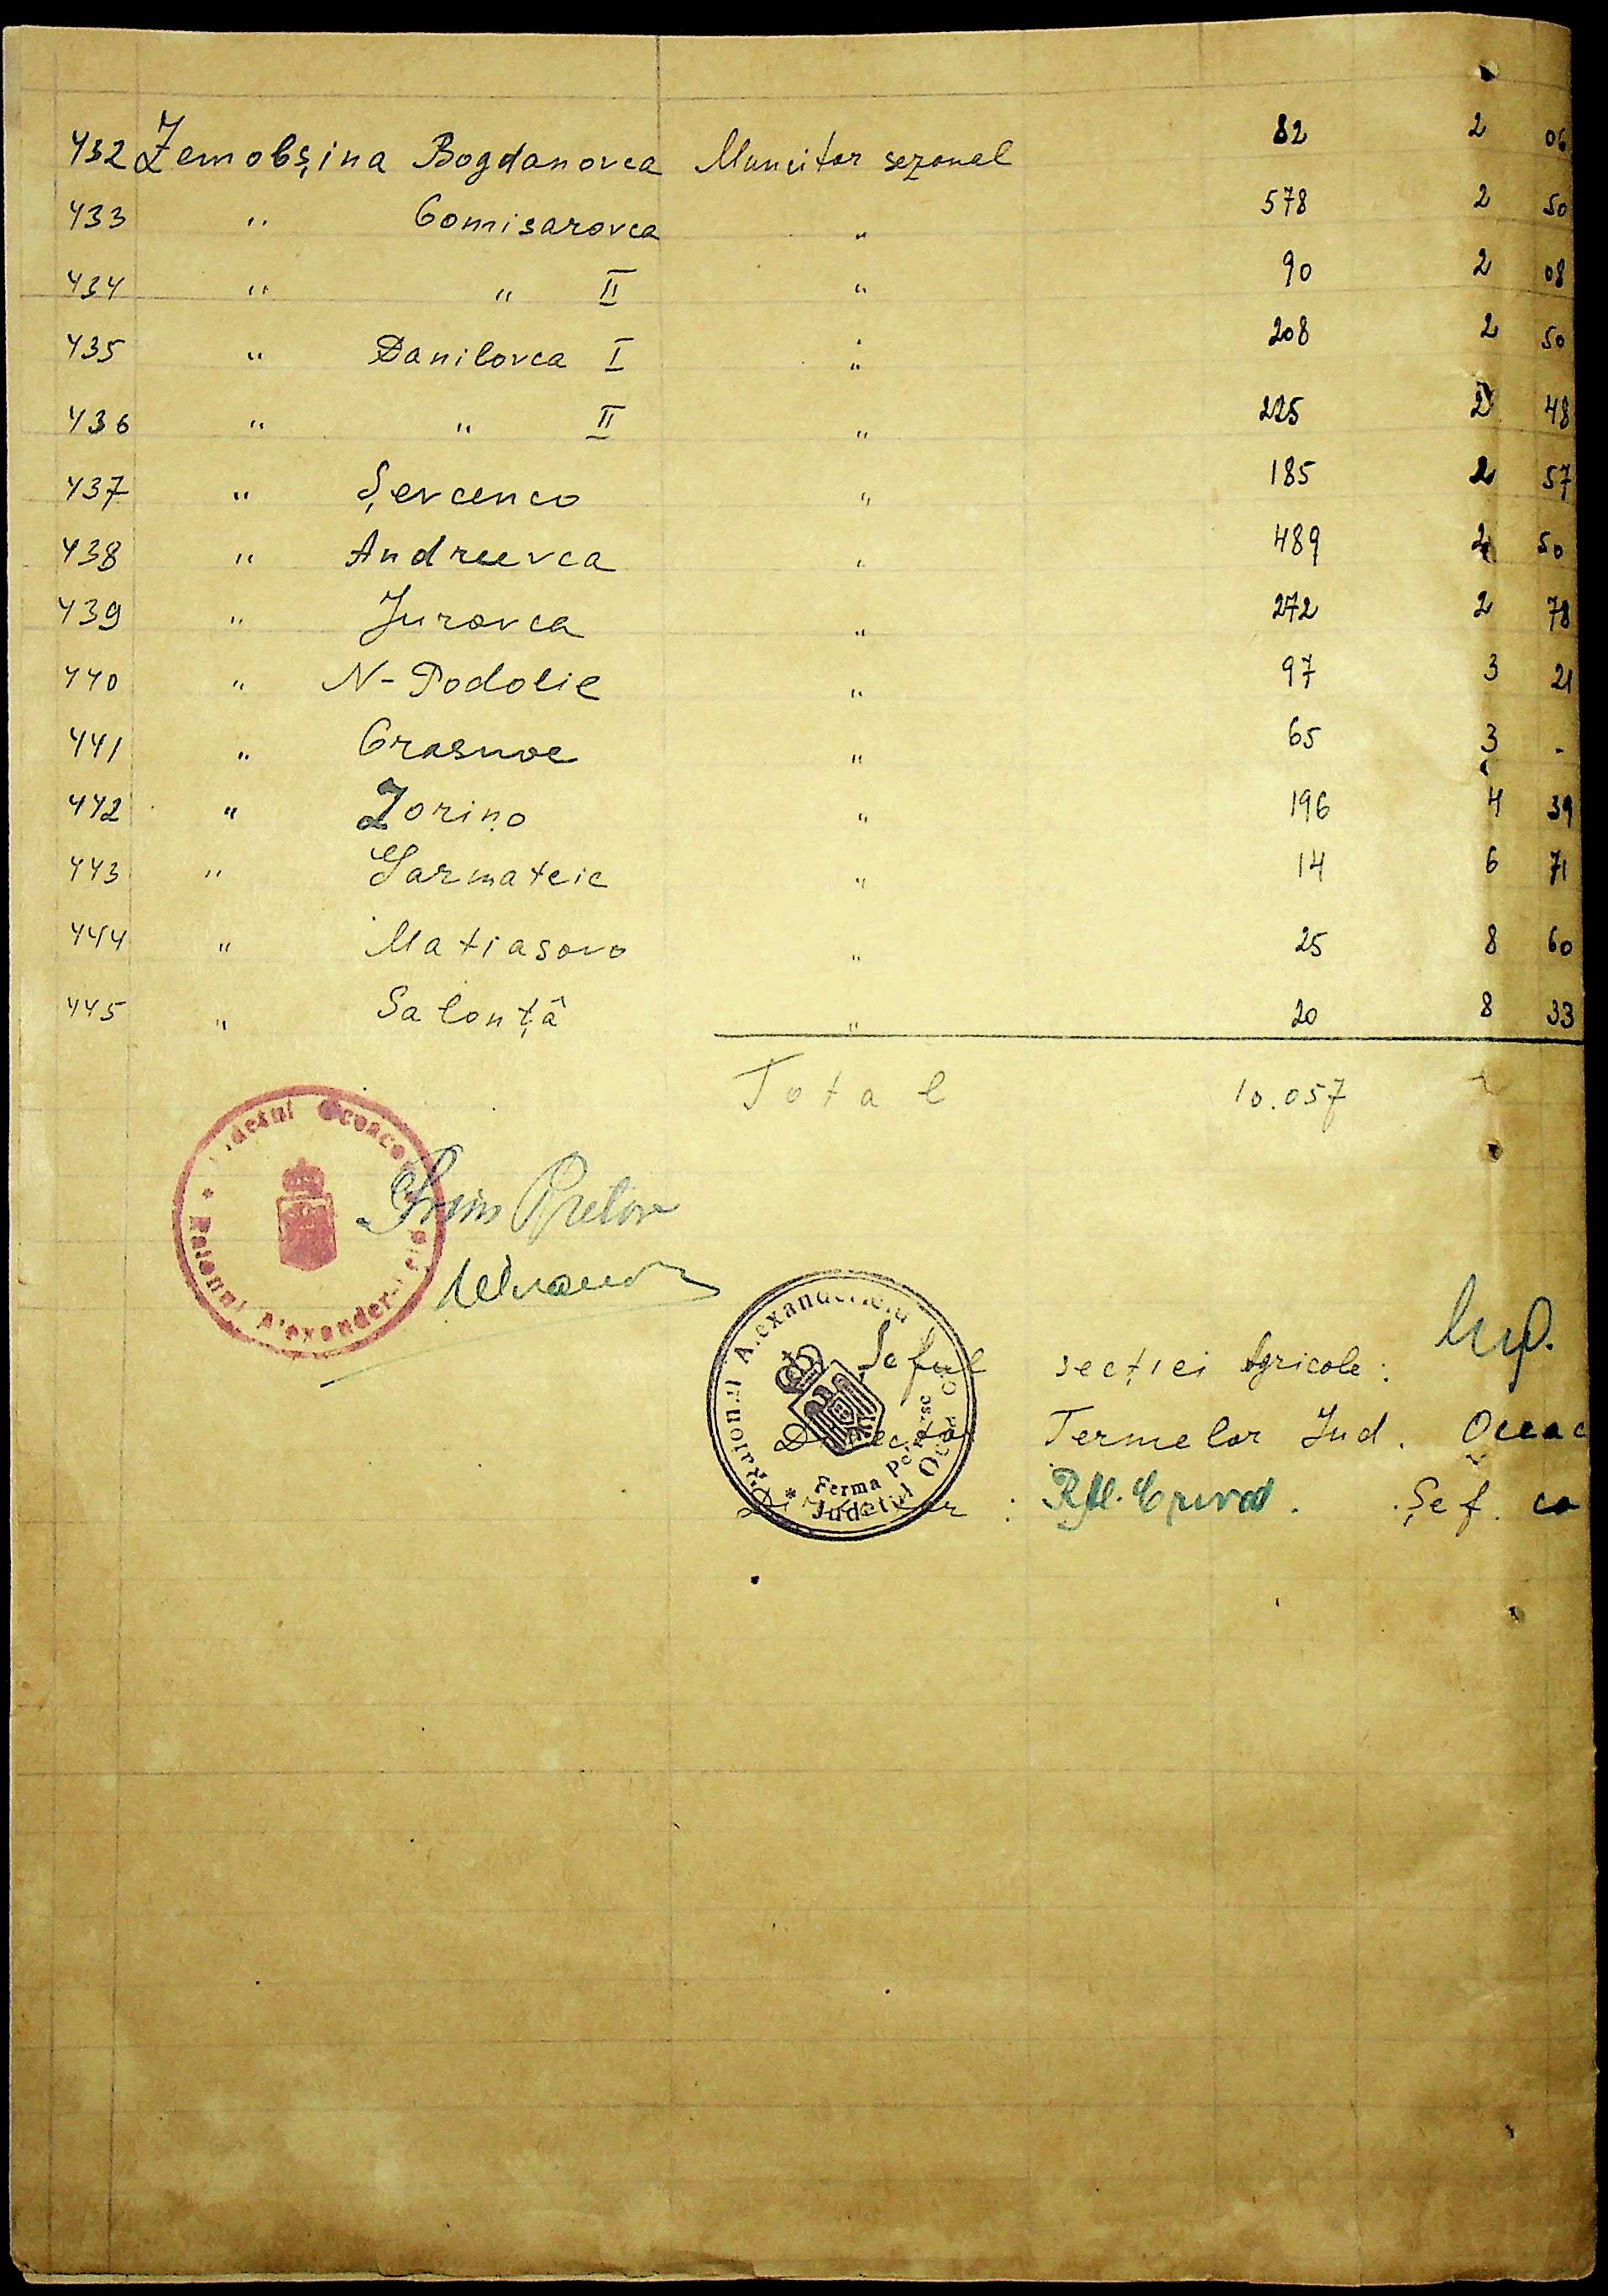 432 Zemobșina Bogdanovca Muncitor sezonal 82 2 06
433 " Comisarovca " 578 2 50
434 " " II " 90 2 08
435 " Danilovca I " 208 2 50
436 " " II " 225 2 48
437 " Șevcenco " 185 2 57
438 " Andreevca " 489 2 50
439 " Jurovca " 272 2 78
440 " N-Podolie " 97 3 21
441 " Crasnoe " 65 3 -
442 " Zorino " 196 4 39
443 " Sarmateie " 14 6 71
444 " Matiasovo " 25 8 60
445 " Salonță " 20 8 33
Total 10.057
Prim Pretor
Șeful secției Agricole:
Director Fermelor Jud. Oceac
Șef. co
Ferma
Județul